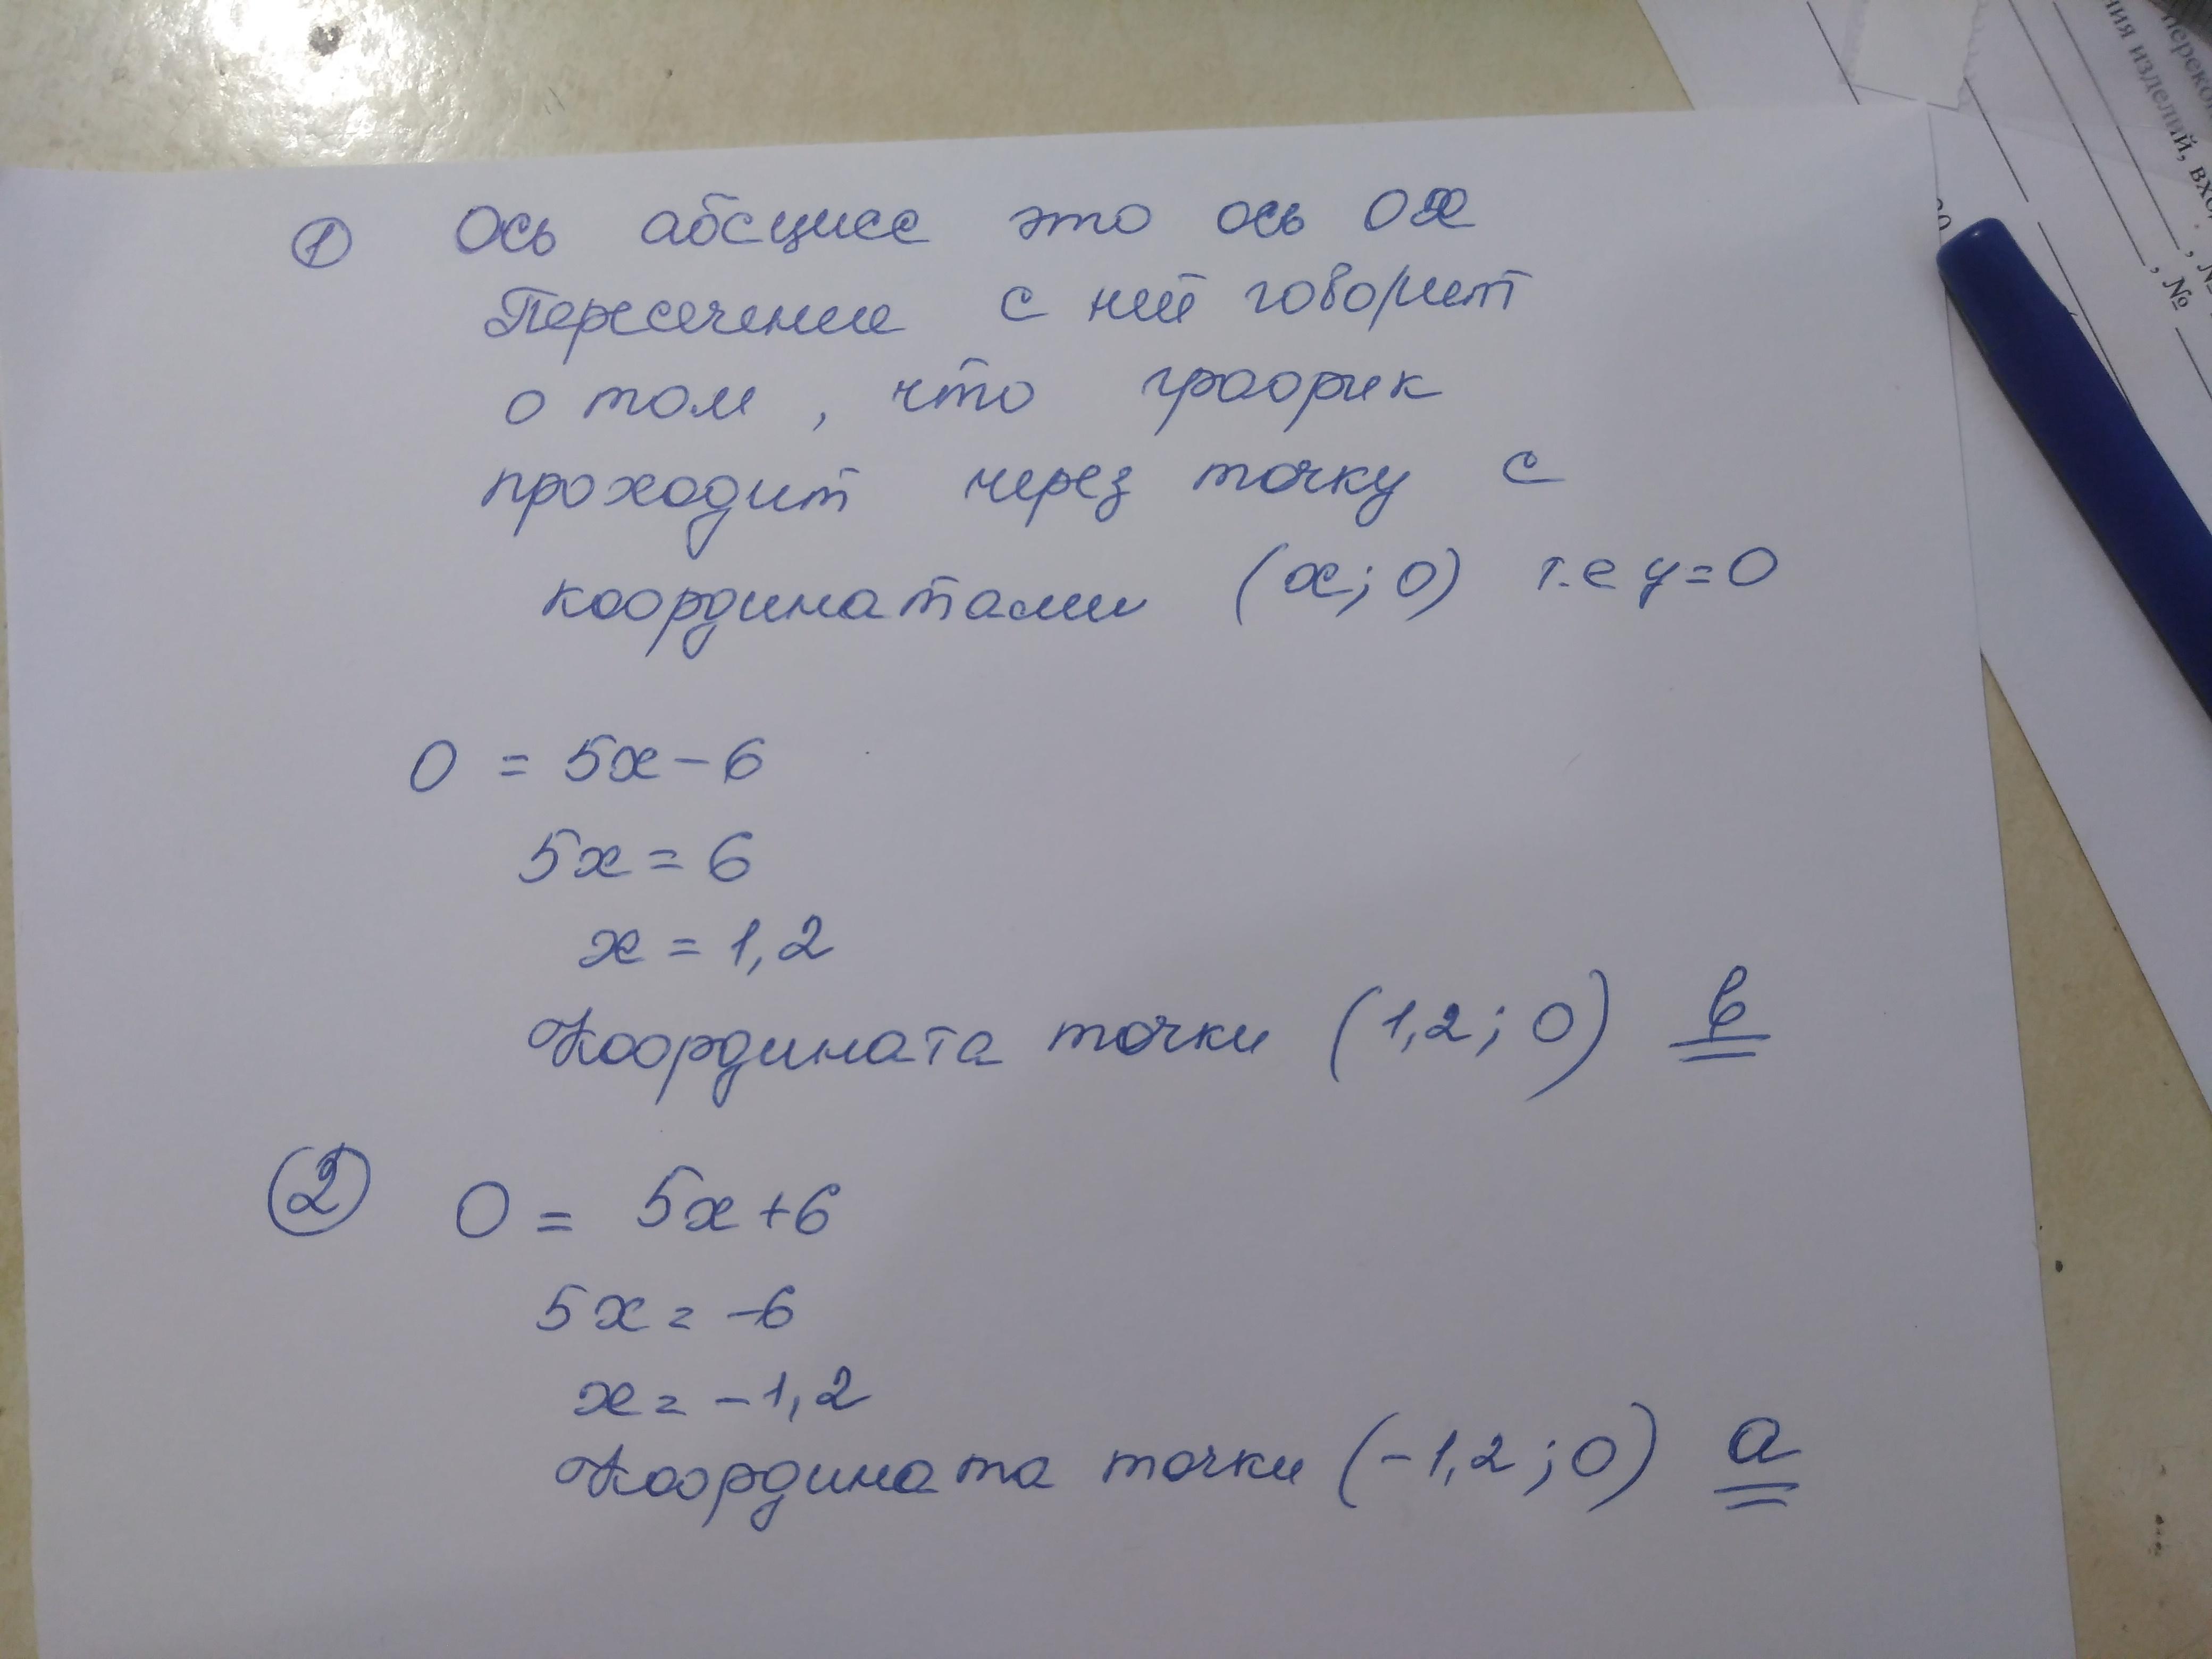 ① Ось абсцисс это ось Ох
Пересечение с ней говорит
о том, что график
проходит через точку с
координатами (х; 0) т.е у=0
0 = 5х-6
5х = 6
х = 1,2
Координата точки (1,2; 0) в
② 0 = 5х+6
5х = -6
х = -1,2
Координата точки (-1,2; 0) а
ния изделий,
, №
, №